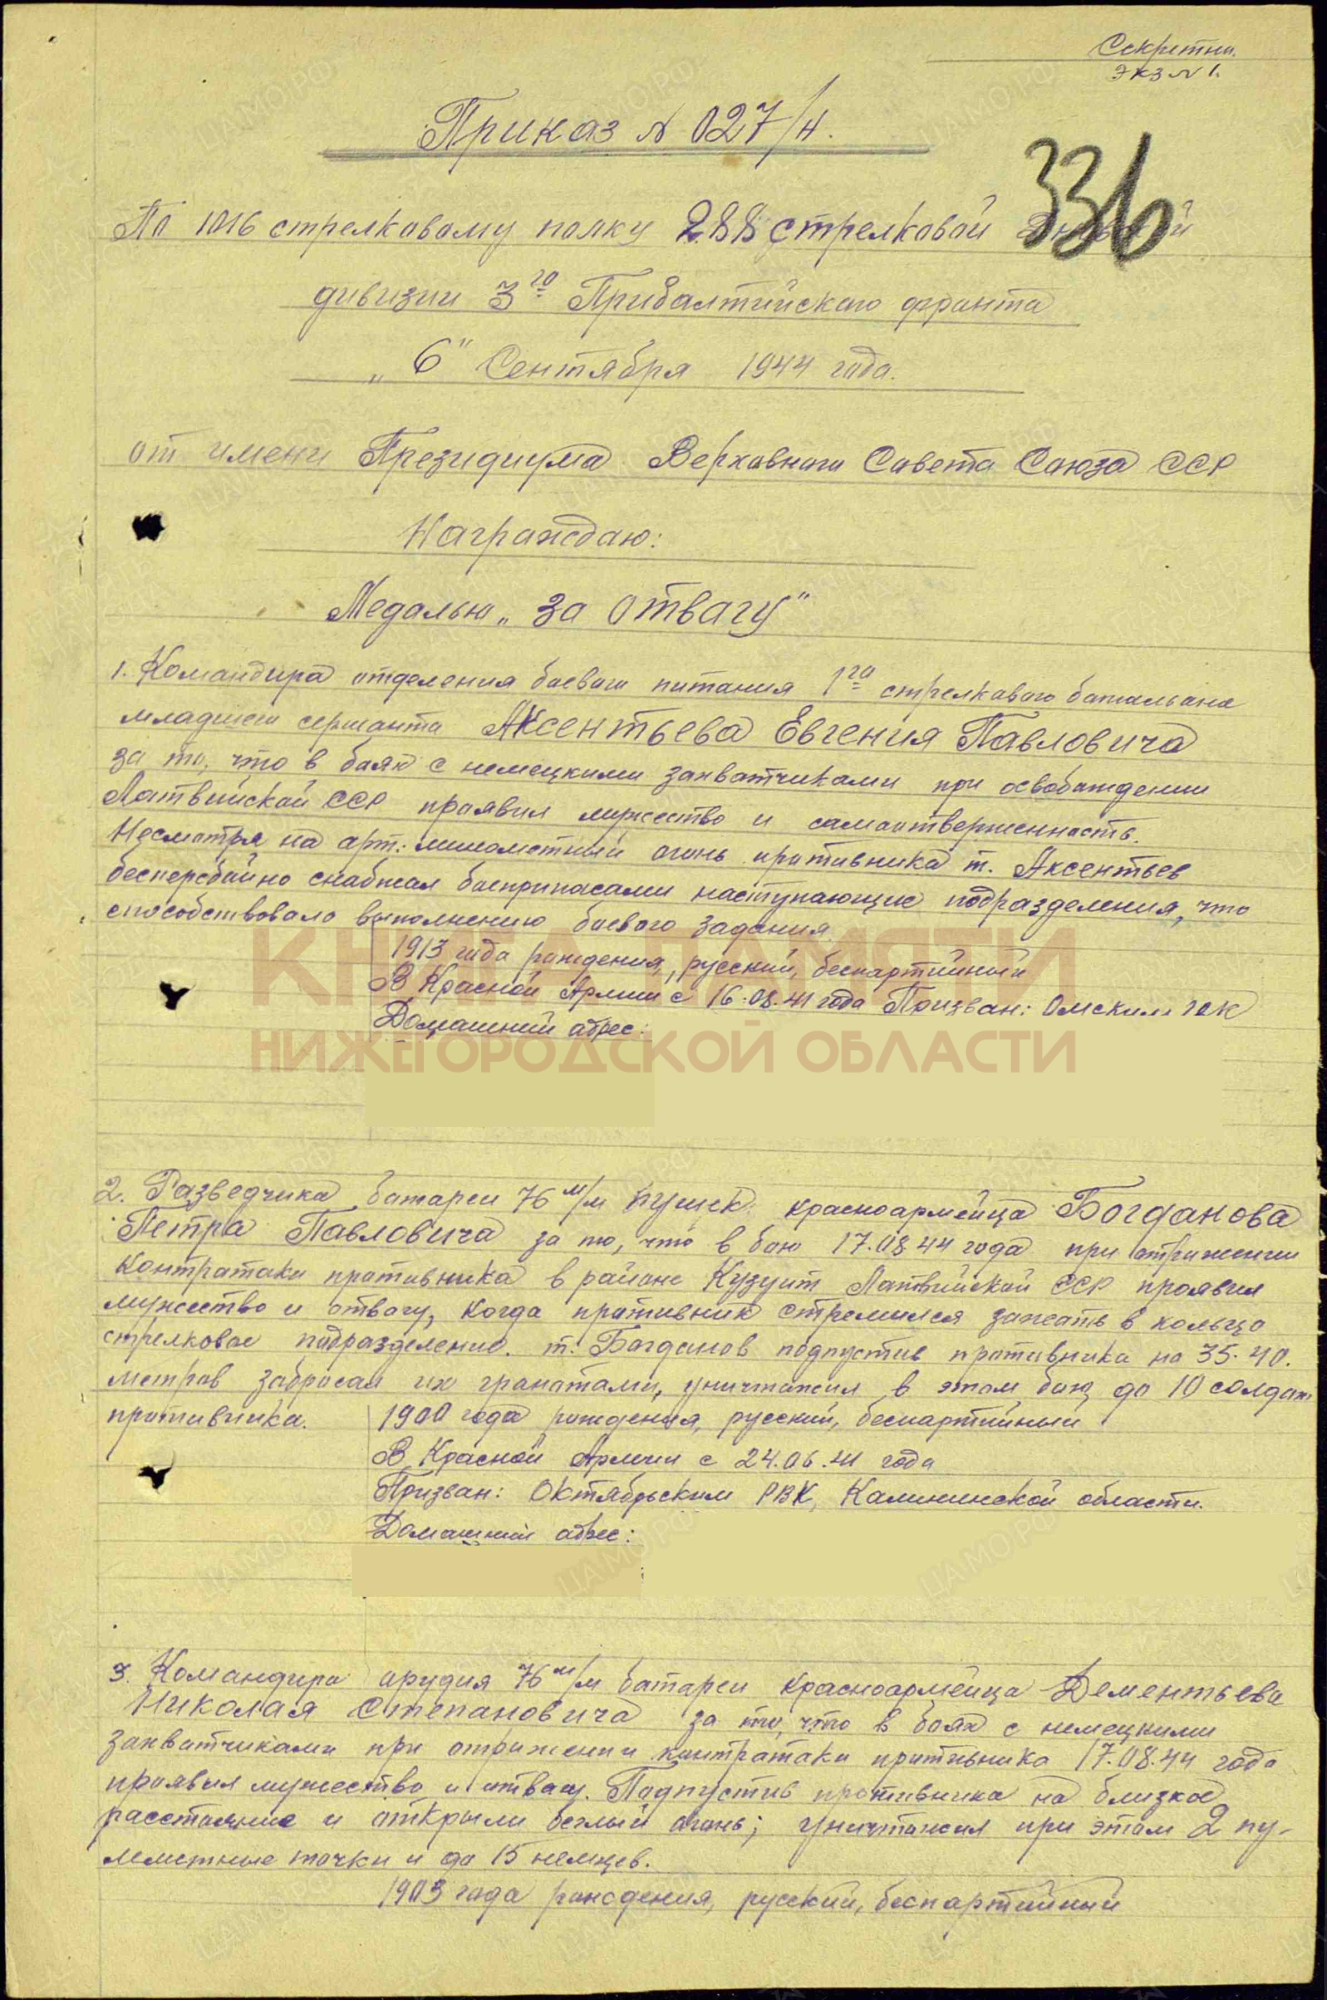 Секретно.
Экз № 1.
Приказ № 027/н.
336
По 1016 стрелковому полку 288 стрелковой
дивизии 3го Прибалтийского фронта
„6" Сентября 1944 года.
от имени Президиума Верховного Совета Союза ССР
Награждаю:
Медалью „за отвагу"
1. Командира отделения боевого питания 1го стрелкового батальона
младшего сержанта Аксентьева Евгения Павловича
за то, что в боях с немецкими захватчиками при освобождении
Латвийской ССР проявил мужество и самоотверженность.
Несмотря на арт. минометный огонь противника т. Аксентьев
бесперебойно снабжал боеприпасами наступающие подразделения, что
способствовало выполнению боевого задания.
1913 года рождения, русский, беспартийный
В Красной Армии с 16.08.41 года Призван: Омским ГВК
Домашний адрес:
КНИГА ПАМЯТИ
НИЖЕГОРОДСКОЙ ОБЛАСТИ
2. Разведчика батареи 76 м/м пушек красноармейца Богданова
Петра Павловича за то, что в бою 17.08.44 года при отражении
контратаки противника в районе Латвийской ССР проявил
мужество и отвагу, когда противник стремился зажать в кольцо
стрелковое подразделение. т. Богданов подпустив противника на 35-40.
метров забросал их гранатами, уничтожил в этом бою до 10 солдат
противника.
1900 года рождения, русский, беспартийный
В Красной Армии с 24.06.41 года
Призван: Октябрьским РВК, Калининской области.
Домашний адрес:
3. Командира орудия 76 м/м батареи красноармейца Дементьева
Николая Степановича за то, что в боях с немецкими
захватчиками при отражении контратаки противника 17.08.44 года
проявил мужество и отвагу. Подпустив противника на близкое
расстояние и открыли беглый огонь; уничтожил при этом 2 пу-
леметные точки и до 15 немцев.
1903 года рождения, русский, беспартийный